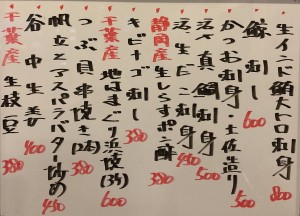 生インド鮪大トロ刺身 800
鯨刺し 600
かつお刺身・土佐造り 500
活〆真鯛刺身 500
活生だこ刺身 450
静岡産 生しらすポン酢 380
キビナゴ刺し 380
千葉産 地はまぐり浜焼(3ケ) 600
つぶ貝串焼き 380
帆立とアスパラバター炒め 450
谷中生姜 400
千葉産 生枝豆 380